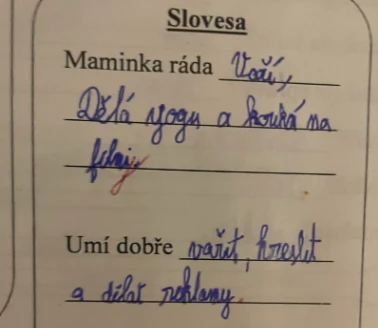 Slovesa
Maminka ráda Vaří,
Dělá yogu a kouká na
filmy
Umí dobře vařit, kreslit
a dělat reklamy.